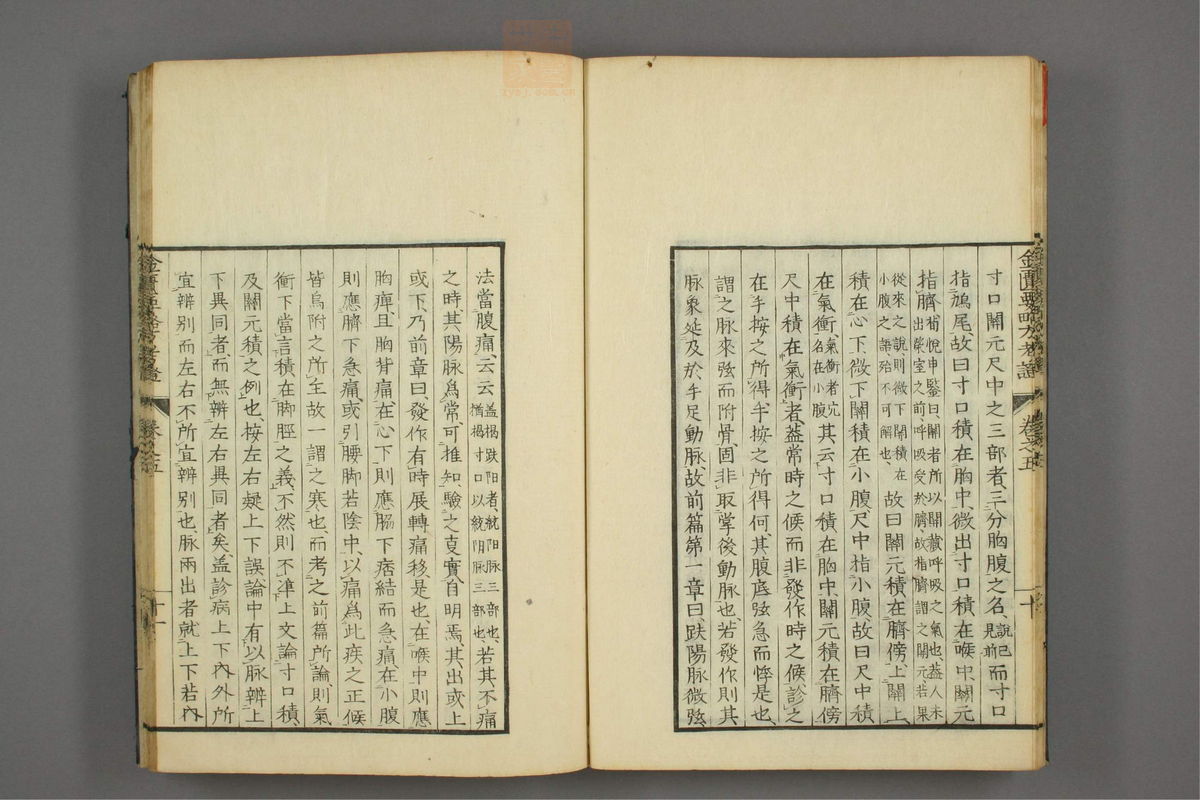 寸口關元尺中之三部者、三分胸腹之名、說已見前而寸口
指鳩尾、故曰寸口積、在胸中、微出寸口積、在喉中、關元
指臍荀悅申鑒曰、關者所以關藏呼吸之氣也、蓋人未出榮室之前呼吸受於臍故指臍謂之關元、若果
從來之說則微下關積在小腹之語殆不可解也、故曰關元積、在臍傍、上關上
積在心下、微下關、積在小腹、尺中指小腹、故曰尺中積
在氣衝氣衝者穴名在小腹其云寸口積在胸中、關元積在臍傍
尺中積在氣衝者、蓋常時之候而非發作時之候、診之
在手按之所得、手按之所得何、其腹底弦急而悸是也、
謂之脉來弦而附骨、固非取掌後動脉也、若發作則其
脉象延及於手足動脉、故前篇第一章曰、趺陽脉微弦、
法當腹痛、云云蓋揭趺陽者、統陽脉三部也、猶揭寸口以統陰脉三部也、若其不痛
之時、其陽脉爲常、可推知、驗之實、自明焉、其出或上、
或下、乃前章曰、發作有時、展轉痛移是也、在喉中則應
胸痺、且胸背痛、在心下則應脇下痞結而急痛、在小腹
則應臍下急痛、或引腰脚若陰中、以痛爲此疾之正候
皆烏附之所主故一謂之寒也、而考之前篇所論則氣
衝下、當言積在脚脛之義、不然則不準上文論寸口積、
及關元積之例也、按左右疑上下誤論中有以脉辨上
下異同者、而無辨左右異同者矣、蓋診病上下內外所
宜辨別而左右不所宜辨別也、脉兩出者就上下若內
金匱要略方考證
卷之五
十
卷之五
十一